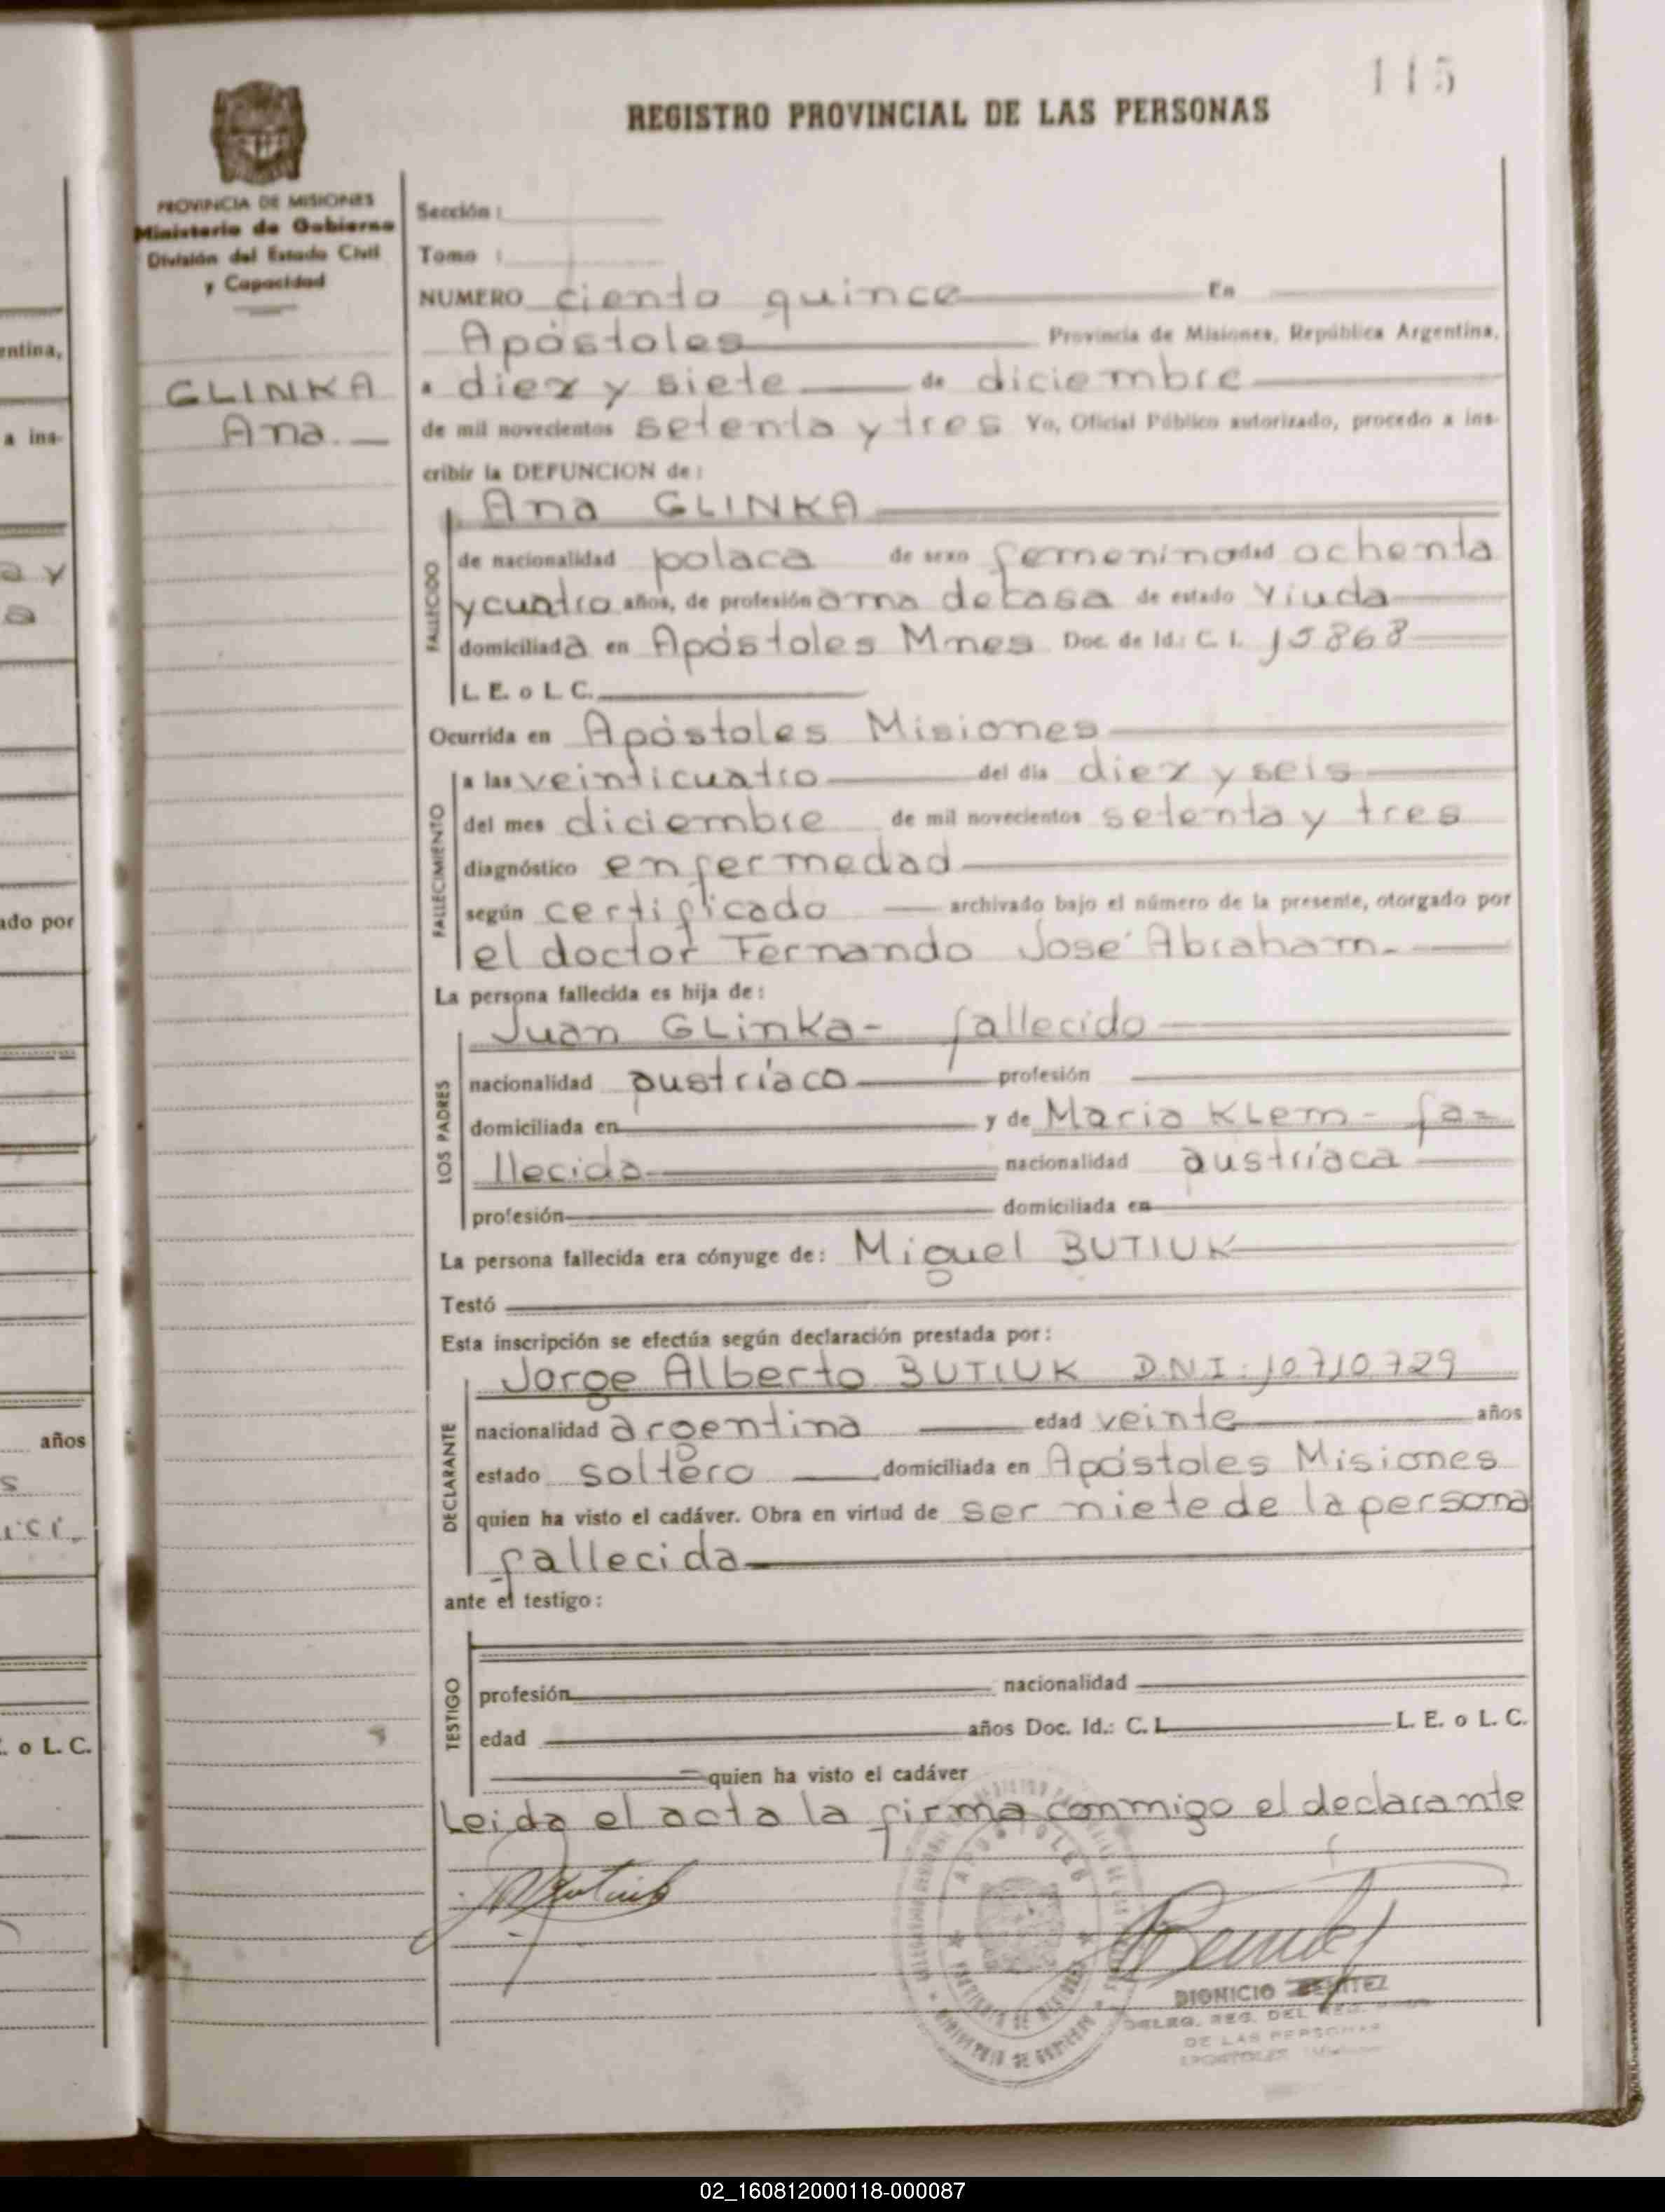 115
REGISTRO PROVINCIAL DE LAS PERSONAS
PROVINCIA DE MISIONES
Ministerio de Gobierno
División del Estado Civil
y Capacidad
GLINKA
Ana.
Sección:
Tomo :
NUMERO ciento quince En
Apóstoles Provincia de Misiones, República Argentina,
a diez y siete de diciembre
de mil novecientos setenta y tres Yo, Oficial Público autorizado, procedo a ins-
cribir la DEFUNCION de:
Ana GLINKA
FALLECIDO
de nacionalidad polaca de sexo femenino edad ochenta
y cuatro años, de profesión ama de casa de estado Viuda
domiciliada en Apóstoles Mnes Doc. de Id.: C. I. 15868
L. E. o L C.
Ocurrida en Apóstoles Misiones
FALLECIMIENTO
a las veinticuatro del día diez y seis
del mes diciembre de mil novecientos setenta y tres
diagnóstico enfermedad
según certificado archivado bajo el número de la presente, otorgado por
el doctor Fernando José Abraham.
La persona fallecida es hija de:
LOS PADRES
Juan GLinka- fallecido
nacionalidad austríaco profesión
domiciliada en y de Maria KLem - fa=
llecida nacionalidad austríaca
profesión domiciliada en
La persona fallecida era cónyuge de: Miguel BUTIUK
Testó
Esta inscripción se efectúa según declaración prestada por:
DECLARANTE
Jorge Alberto BUTIUK D.N.I: 10.710.729
nacionalidad argentina edad veinte años
estado soltero domiciliada en Apóstoles Misiones
quien ha visto el cadáver. Obra en virtud de ser niete de la persona
fallecida
ante el testigo:
TESTIGO
profesión nacionalidad
edad años Doc. Id.: C. I. L. E. o L. C.
quien ha visto el cadáver
Leida el acta la firma conmigo el declarante
APOSTOLES
PROVINCIA DE MISIONES
MINISTERIO DE GOBIERNO
DIONICIO BENITEZ
DELEG. REG. DEL REG.
DE LAS PERSONAS
APOSTOLES
entina,
a ins-
a y
a
ado por
años
s
o L. C.
02_160812000118-000087